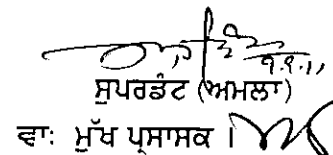 ੧.੧.11
ਸੁਪਰਡੰਟ (ਅਮਲਾ)
ਵਾ: ਮੁੱਖ ਪ੍ਰਸਾਸਕ ।